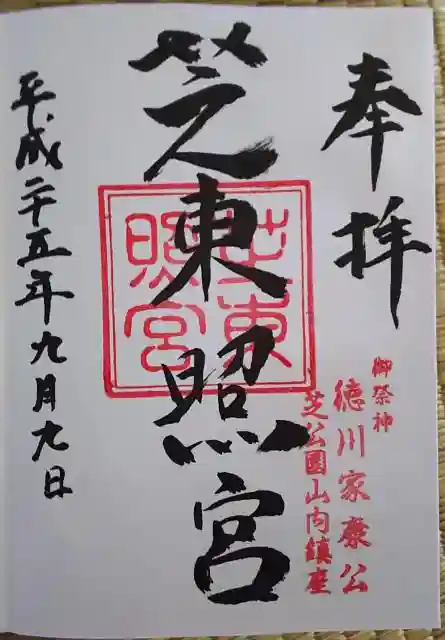 奉拝
御祭神
徳川家康公
芝公園山内鎮座
芝東照宮
芝東照宮
平成二十五年九月九日